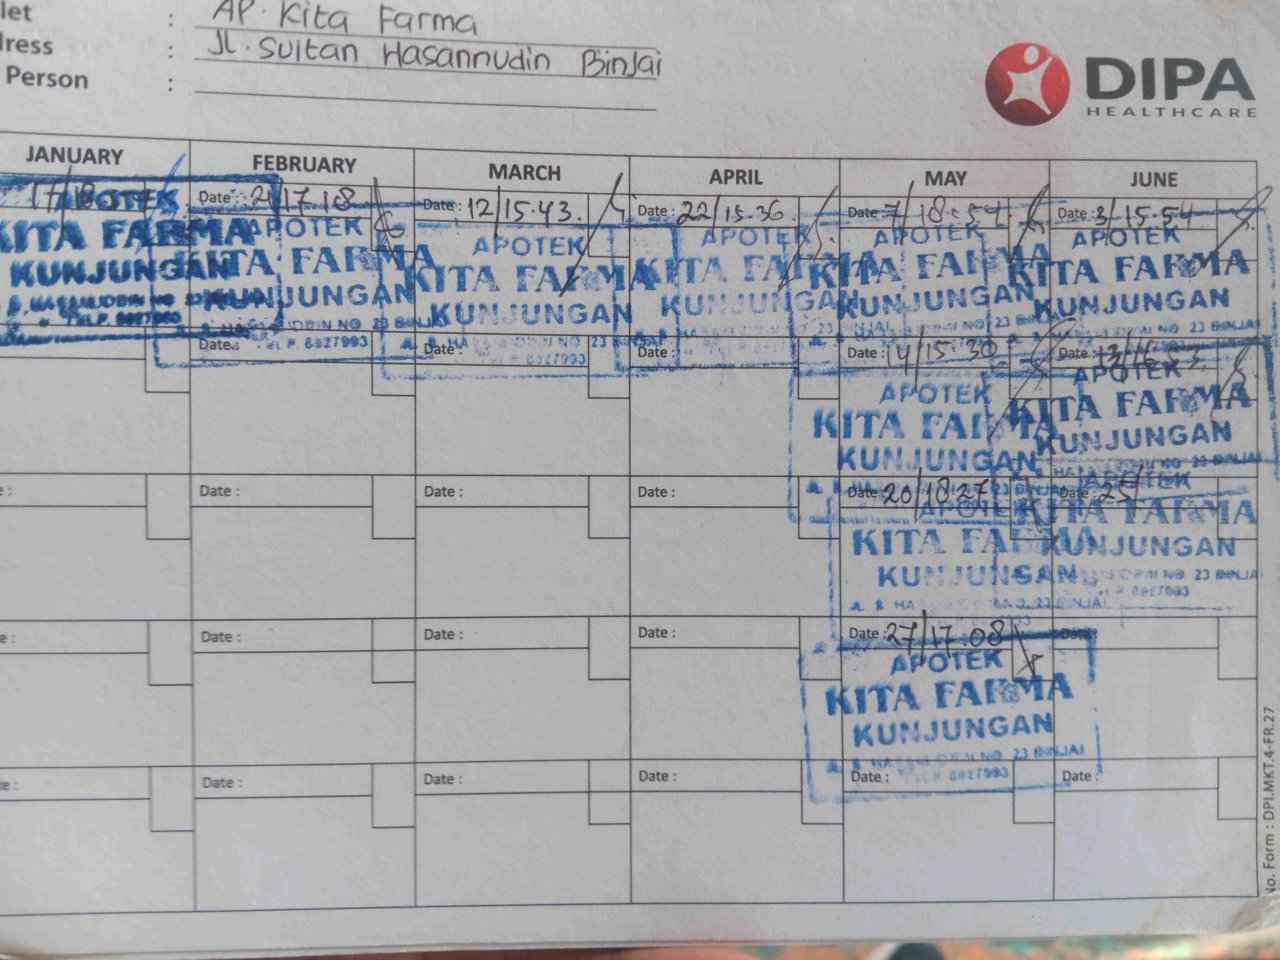 let : AP. Kita Farma
dress : Jl. Sultan Hasannudin Binjai
Person :
DIPA
HEALTHCARE
JANUARY FEBRUARY MARCH APRIL MAY JUNE
Date : 21/17.18 Date : 12/15.43. Date : 22/15.36. Date : 7/18.54 Date : 3/15.54
APOTEK APOTEK APOTEK APOTEK APOTEK APOTEK
KITA FARMA KITA FARMA KITA FARMA KITA FARMA KITA FARMA KITA FARMA
KUNJUNGAN KUNJUNGAN KUNJUNGAN KUNJUNGAN KUNJUNGAN KUNJUNGAN
NO 23 BINJAI
TELP. 8827993
Date : Date : Date : Date : 14/15.30 Date : 13/16.53
APOTEK APOTEK
KITA FARMA KITA FARMA
KUNJUNGAN KUNJUNGAN
Date : Date : Date : Date : Date : 20/18.27 Date : 25/
APOTEK APOTEK
KITA FARMA KITA FARMA
KUNJUNGAN KUNJUNGAN
NO. 23 BINJAI NO 23 BINJAI
Date : Date : Date : Date : 27/17.08 Date :
APOTEK
KITA FARMA
KUNJUNGAN
NO 23 BINJAI
Date : Date : Date : Date : Date :
No. Form : DPI.MKT.4-FR.27